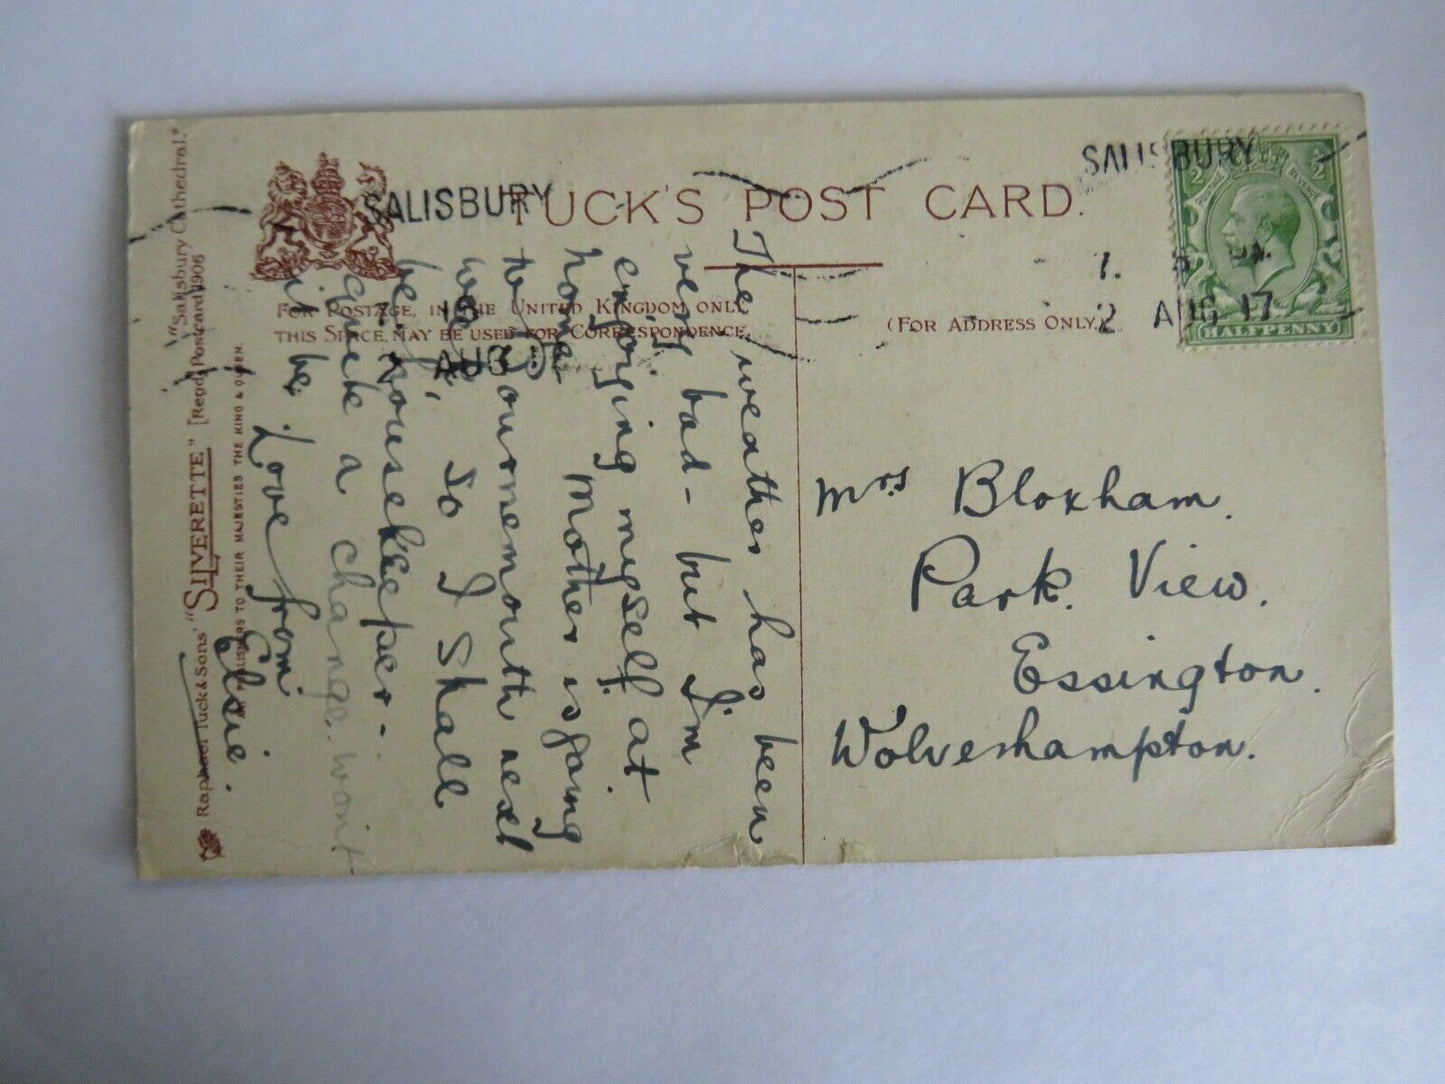 TUCK'S POST CARD.
FOR POSTAGE, IN THE UNITED KINGDOM ONLY,
THIS SPACE, MAY BE USED FOR CORRESPONDENCE.
(FOR ADDRESS ONLY.)
SALISBURY
AUG
SALISBURY
2 AUG 17
HALFPENNY
The weather has been
very bad - but I'm
enjoying myself at
home. Mother is going
to Bournemouth next
so I shall
be housekeeper -
quite a change, won't
it be
Love from
Elsie.
Mrs Bloxham.
Park. View.
Essington.
Wolverhampton.
Raphael Tuck & Sons' "SILVERETTE" [Regd.] Postcard 1906
"Salisbury Cathedral."
PUBLISHERS TO THEIR MAJESTIES THE KING & QUEEN.